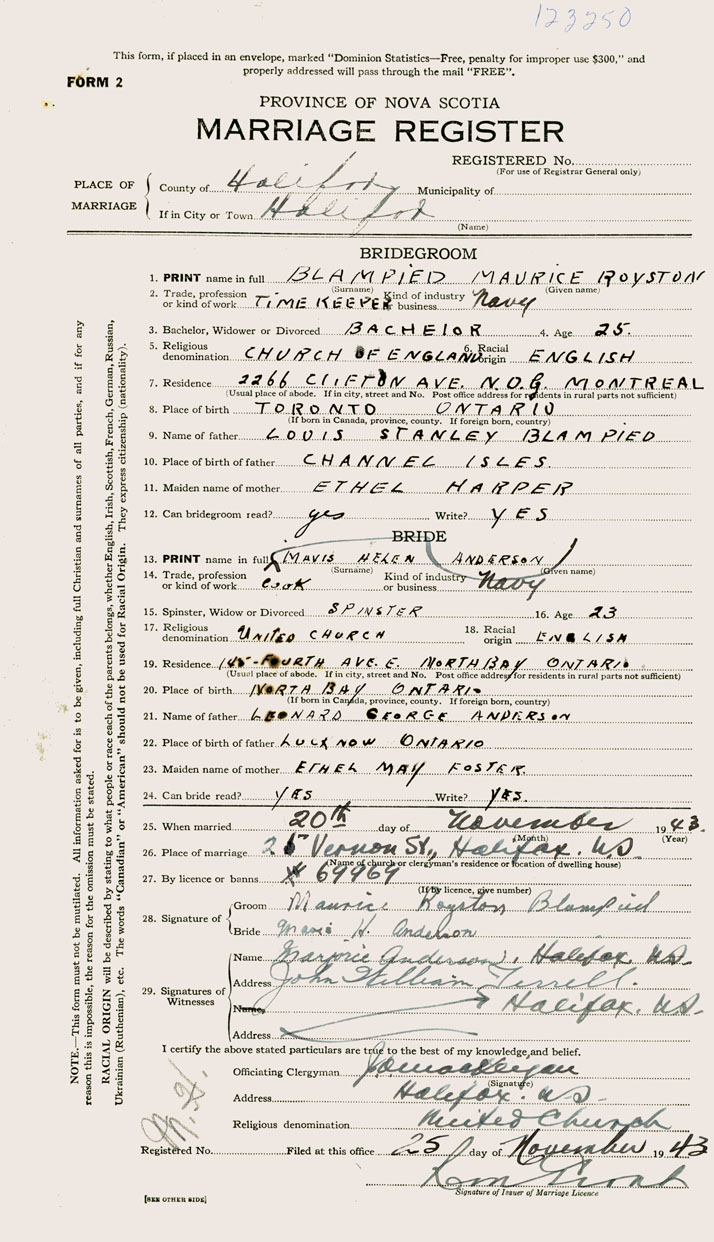 123250
This form, if placed in an envelope, marked "Dominion Statistics—Free, penalty for improper use $300," and
properly addressed will pass through the mail "FREE".
FORM 2
PROVINCE OF NOVA SCOTIA
MARRIAGE REGISTER
REGISTERED No.
(For use of Registrar General only)
PLACE OF MARRIAGE
County of Halifax Municipality of
If in City or Town Halifax
(Name)
BRIDEGROOM
1. PRINT name in full BLAMPIED MAURICE ROYSTON
(Surname) (Given name)
2. Trade, profession or kind of work TIME KEEPER Kind of industry or business Navy
3. Bachelor, Widower or Divorced BACHELOR 4. Age 25.
5. Religious denomination CHURCH OF ENGLAND 6. Racial origin ENGLISH
7. Residence 2266 CLIFTON AVE. N.D.G. MONTREAL
(Usual place of abode. If in city, street and No. Post office address for residents in rural parts not sufficient)
8. Place of birth TORONTO ONTARIO
(If born in Canada, province, county. If foreign born, country)
9. Name of father LOUIS STANLEY BLAMPIED
10. Place of birth of father CHANNEL ISLES.
11. Maiden name of mother ETHEL HARPER
12. Can bridegroom read? yes Write? YES
BRIDE
13. PRINT name in full MAVIS HELEN ANDERSON
(Surname) (Given name)
14. Trade, profession or kind of work Cook Kind of industry or business Navy
15. Spinster, Widow or Divorced SPINSTER 16. Age 23
17. Religious denomination UNITED CHURCH 18. Racial origin ENGLISH
19. Residence 145-FOURTH AVE. E. NORTH BAY ONTARIO
(Usual place of abode. If in city, street and No. Post office address for residents in rural parts not sufficient)
20. Place of birth NORTH BAY ONTARIO
(If born in Canada, province, county. If foreign born, country)
21. Name of father LEONARD GEORGE ANDERSON
22. Place of birth of father LUCKNOW ONTARIO
23. Maiden name of mother ETHEL MAY FOSTER.
24. Can bride read? YES Write? YES.
25. When married 20th day of November 1943.
(Month) (Year)
26. Place of marriage Vernon St., Halifax. N.S.
(Name of church or clergyman's residence or location of dwelling house)
27. By licence or banns # 69969
(If by licence, give number)
28. Signature of
Groom Maurice Royston Blampied
Bride Mavis H. Anderson
29. Signatures of Witnesses
Name Marjorie Anderson, Halifax. N.S.
Address John William Terrell.
Name Halifax. N.S.
Address
I certify the above stated particulars are true to the best of my knowledge and belief.
Officiating Clergyman
(Signature)
Address Halifax. N.S.
Religious denomination United Church
Registered No. Filed at this office 25 day of November 1943
Signature of Issuer of Marriage Licence
[SEE OTHER SIDE]
NOTE.—This form must not be mutilated. All information asked for is to be given, including full Christian and surnames of all parties, and if for any
reason this is impossible, the reason for the omission must be stated.
RACIAL ORIGIN will be described by stating to what people or race each of the parents belongs, whether English, Irish, Scottish, French, German, Russian,
Ukrainian (Ruthenian), etc. The words "Canadian" or "American" should not be used for Racial Origin. They express citizenship (nationality).